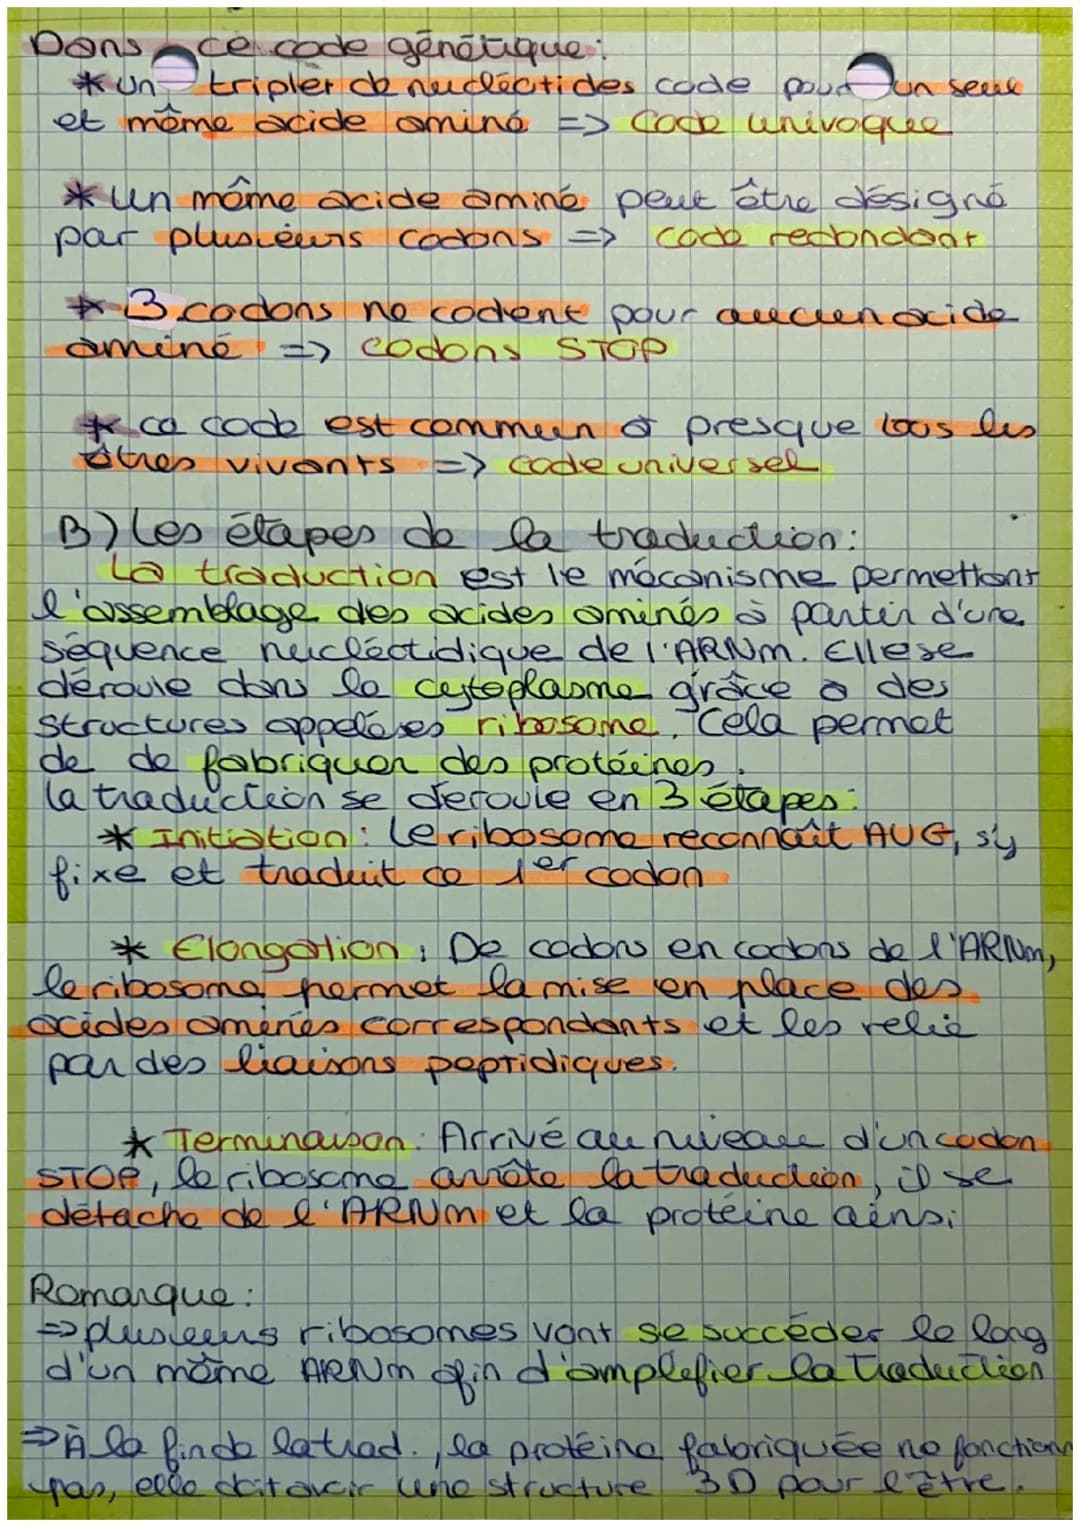 Dans ce code génétique:
* un tripler de nucléotides code pour un seul
et même acide aminé => Code univoque
* un même acide aminé peut être désigné
par plusieurs codons => code redondant
* 3 codons ne codent pour aucun acide
aminé => codons STOP
* ce code est commun à presque tous les
êtres vivants => code universel
B) Les étapes de la traduction:
La traduction est le mécanisme permettant
l'assemblage des acides aminés à partir d'une
séquence nucléotidique de l'ARNm. Elle se
déroule dans le cytoplasme grâce à des
structures appelées ribosome. Cela permet
de de fabriquer des protéines.
la traduction se déroule en 3 étapes:
* Initiation: Le ribosome reconnaît AUG, s'y
fixe et traduit ce 1er codon
* Elongation: De codons en codons de l'ARNm,
le ribosome permet la mise en place des
acides aminés correspondants et les relie
par des liaisons peptidiques.
* Terminaison: Arrivé au niveau d'un codon
STOP, le ribosome arrête la traduction, il se
détache de l'ARNm et la protéine ainsi
Remarque:
=> plusieurs ribosomes vont se succéder le long
d'un même ARNm afin d'amplifier la traduction
=> À la fin de la trad., la protéine fabriquée ne fonctionn
pas, elle doit avoir une structure 3D pour l'être.